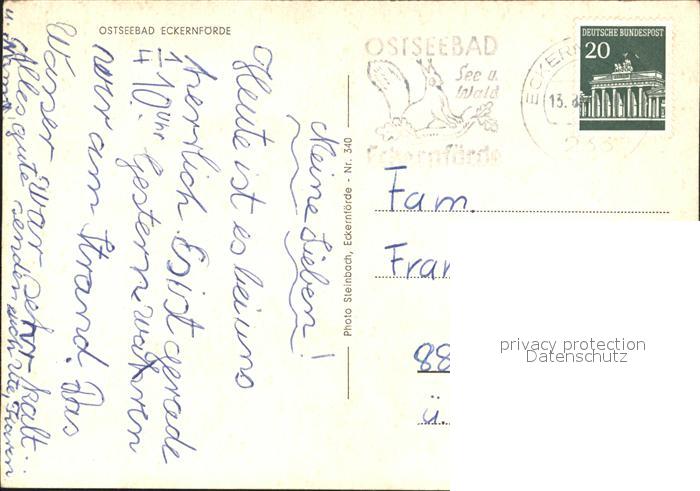 OSTSEEBAD ECKERNFÖRDE
Meine Lieben!
Heute ist es bei uns
herrlich. Es ist gerade
1/4 10 Uhr. Gestern waren
wir am Strand. Das
Wasser war sehr kalt.
Alles gute senden euch Ute, Karen
u. Mama
Photo Steinbach, Eckernförde - Nr. 340
OSTSEEBAD
See u.
Wald
Eckernförde
13.
DEUTSCHE BUNDESPOST
20
Fam.
88
ü.
privacy protection
Datenschutz